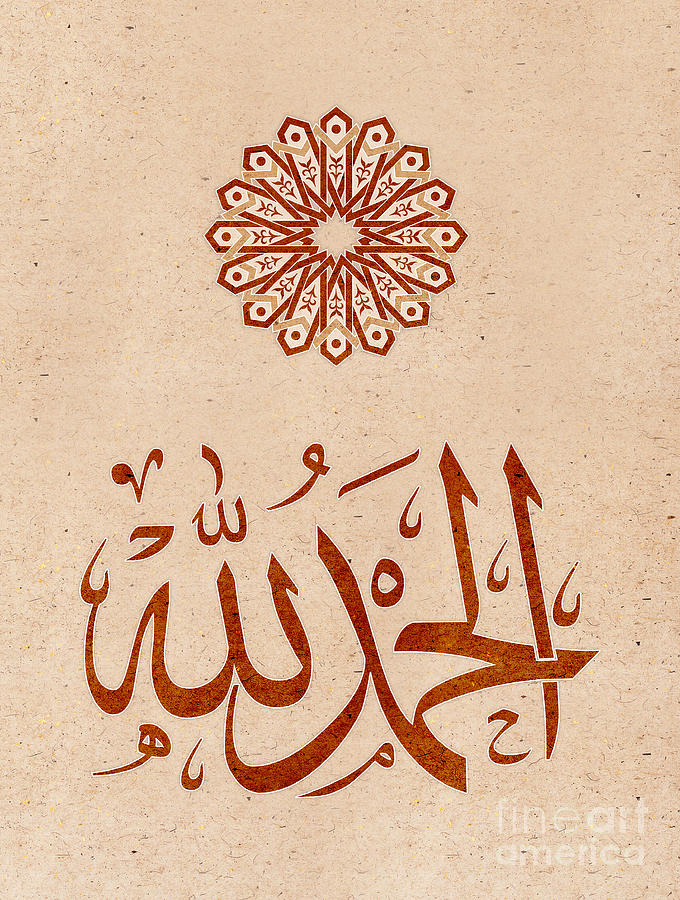 الحَمْدُ لِلّٰه
fineart
america